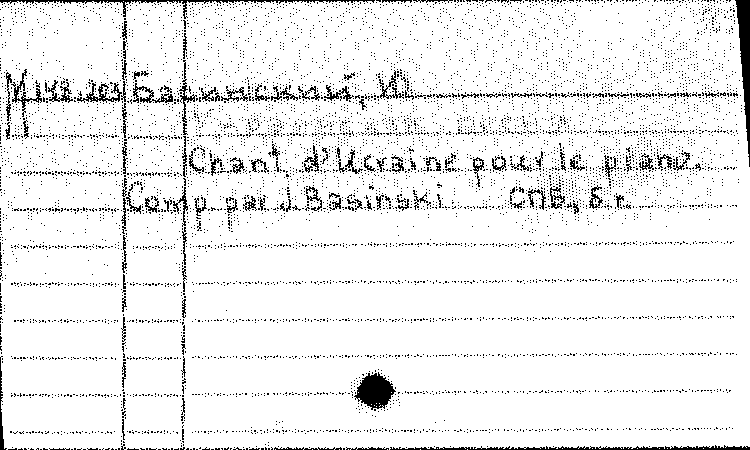 М 148.203 Басинский, И
Chant d'Ucraine pour le piano.
Comp par J. Basinski СПБ, б г.